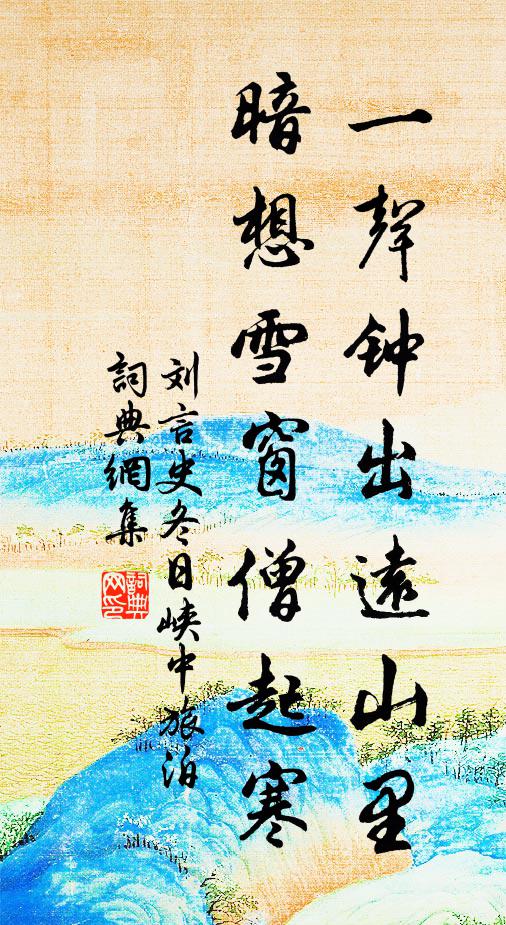 一聲钟出遠山里
暗想雪窗僧起寒
刘言史冬日峡中旅泊
詞典網集
詞典
网印